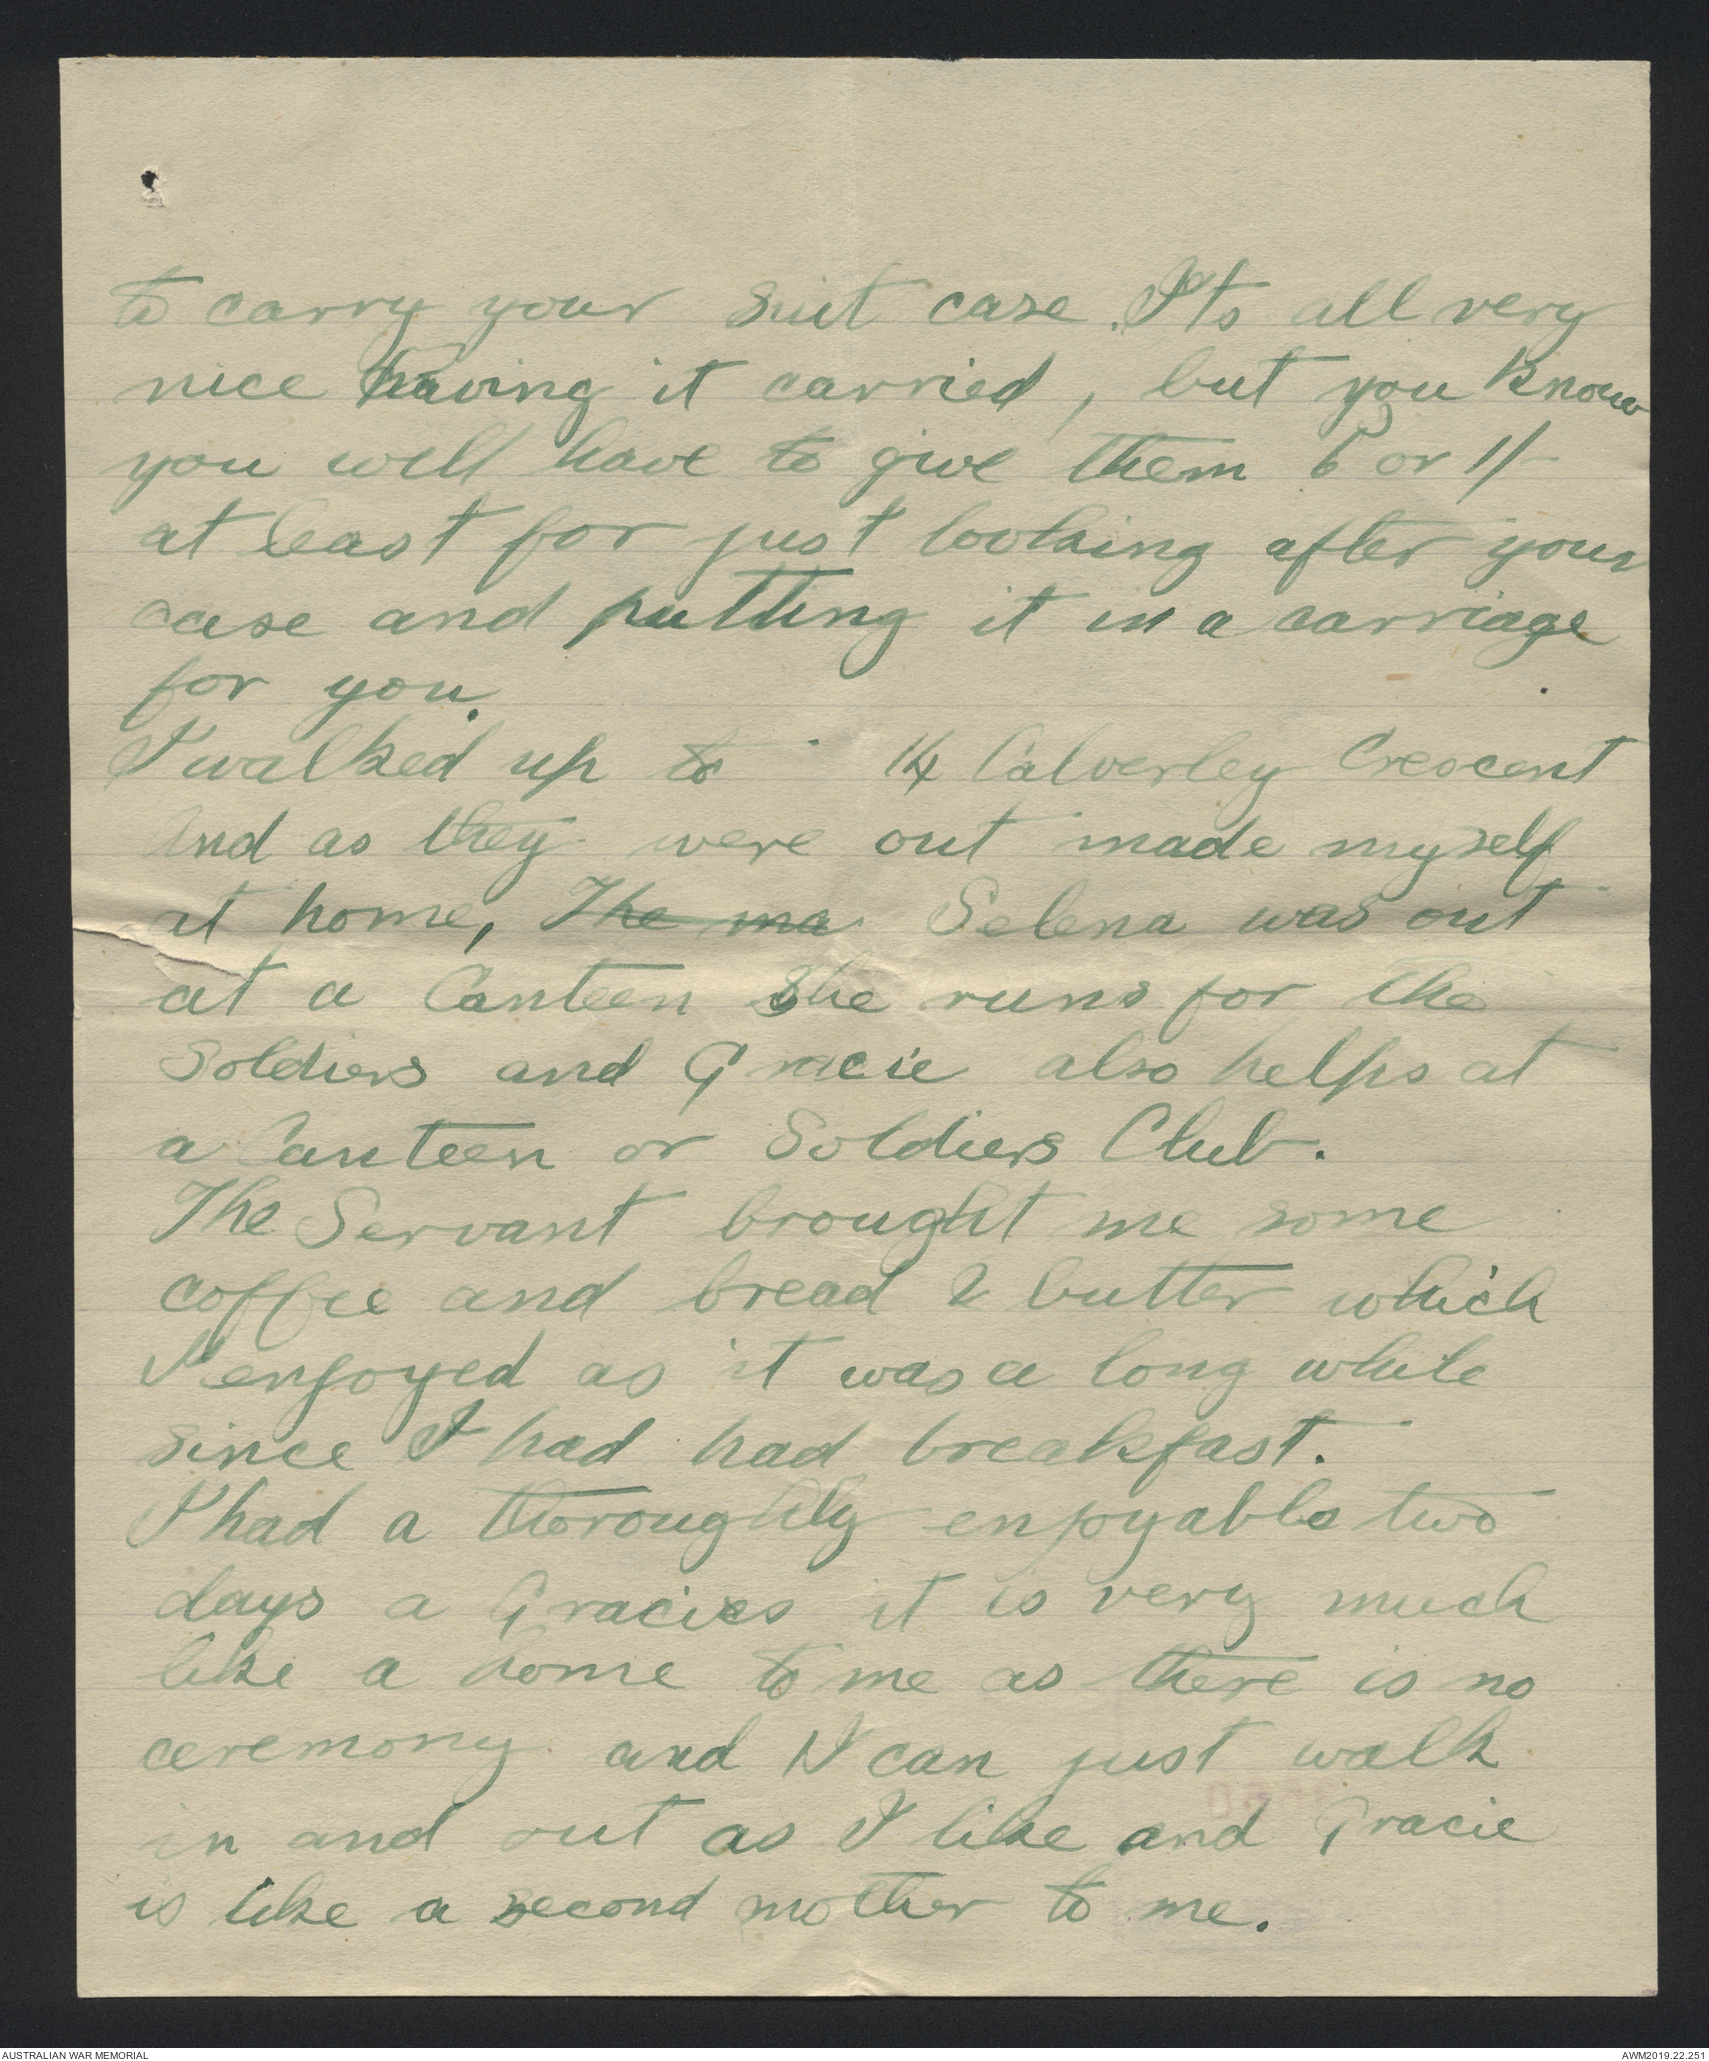 to carry your suit case. Its all very
nice having it carried, but you know
you will have to give them 6d or 1/-
at least for just looking after your
case and putting it in a carriage
for you.
I walked up to 14 Calverley Crescent
And as they were out made myself
at home, The ma Selena was out
at a Canteen She runs for the
Soldiers and Gracie also helps at
a Canteen or Soldiers Club.
The Servant brought me some
coffee and bread & butter which
I enjoyed as it was a long while
since I had had breakfast.
I had a thoroughly enjoyable two
days a Gracies it is very much
like a home to me as there is no
ceremony and I can just walk
in and out as I like and Gracie
is like a second mother to me.
AUSTRALIAN WAR MEMORIAL
AWM2019.22.251